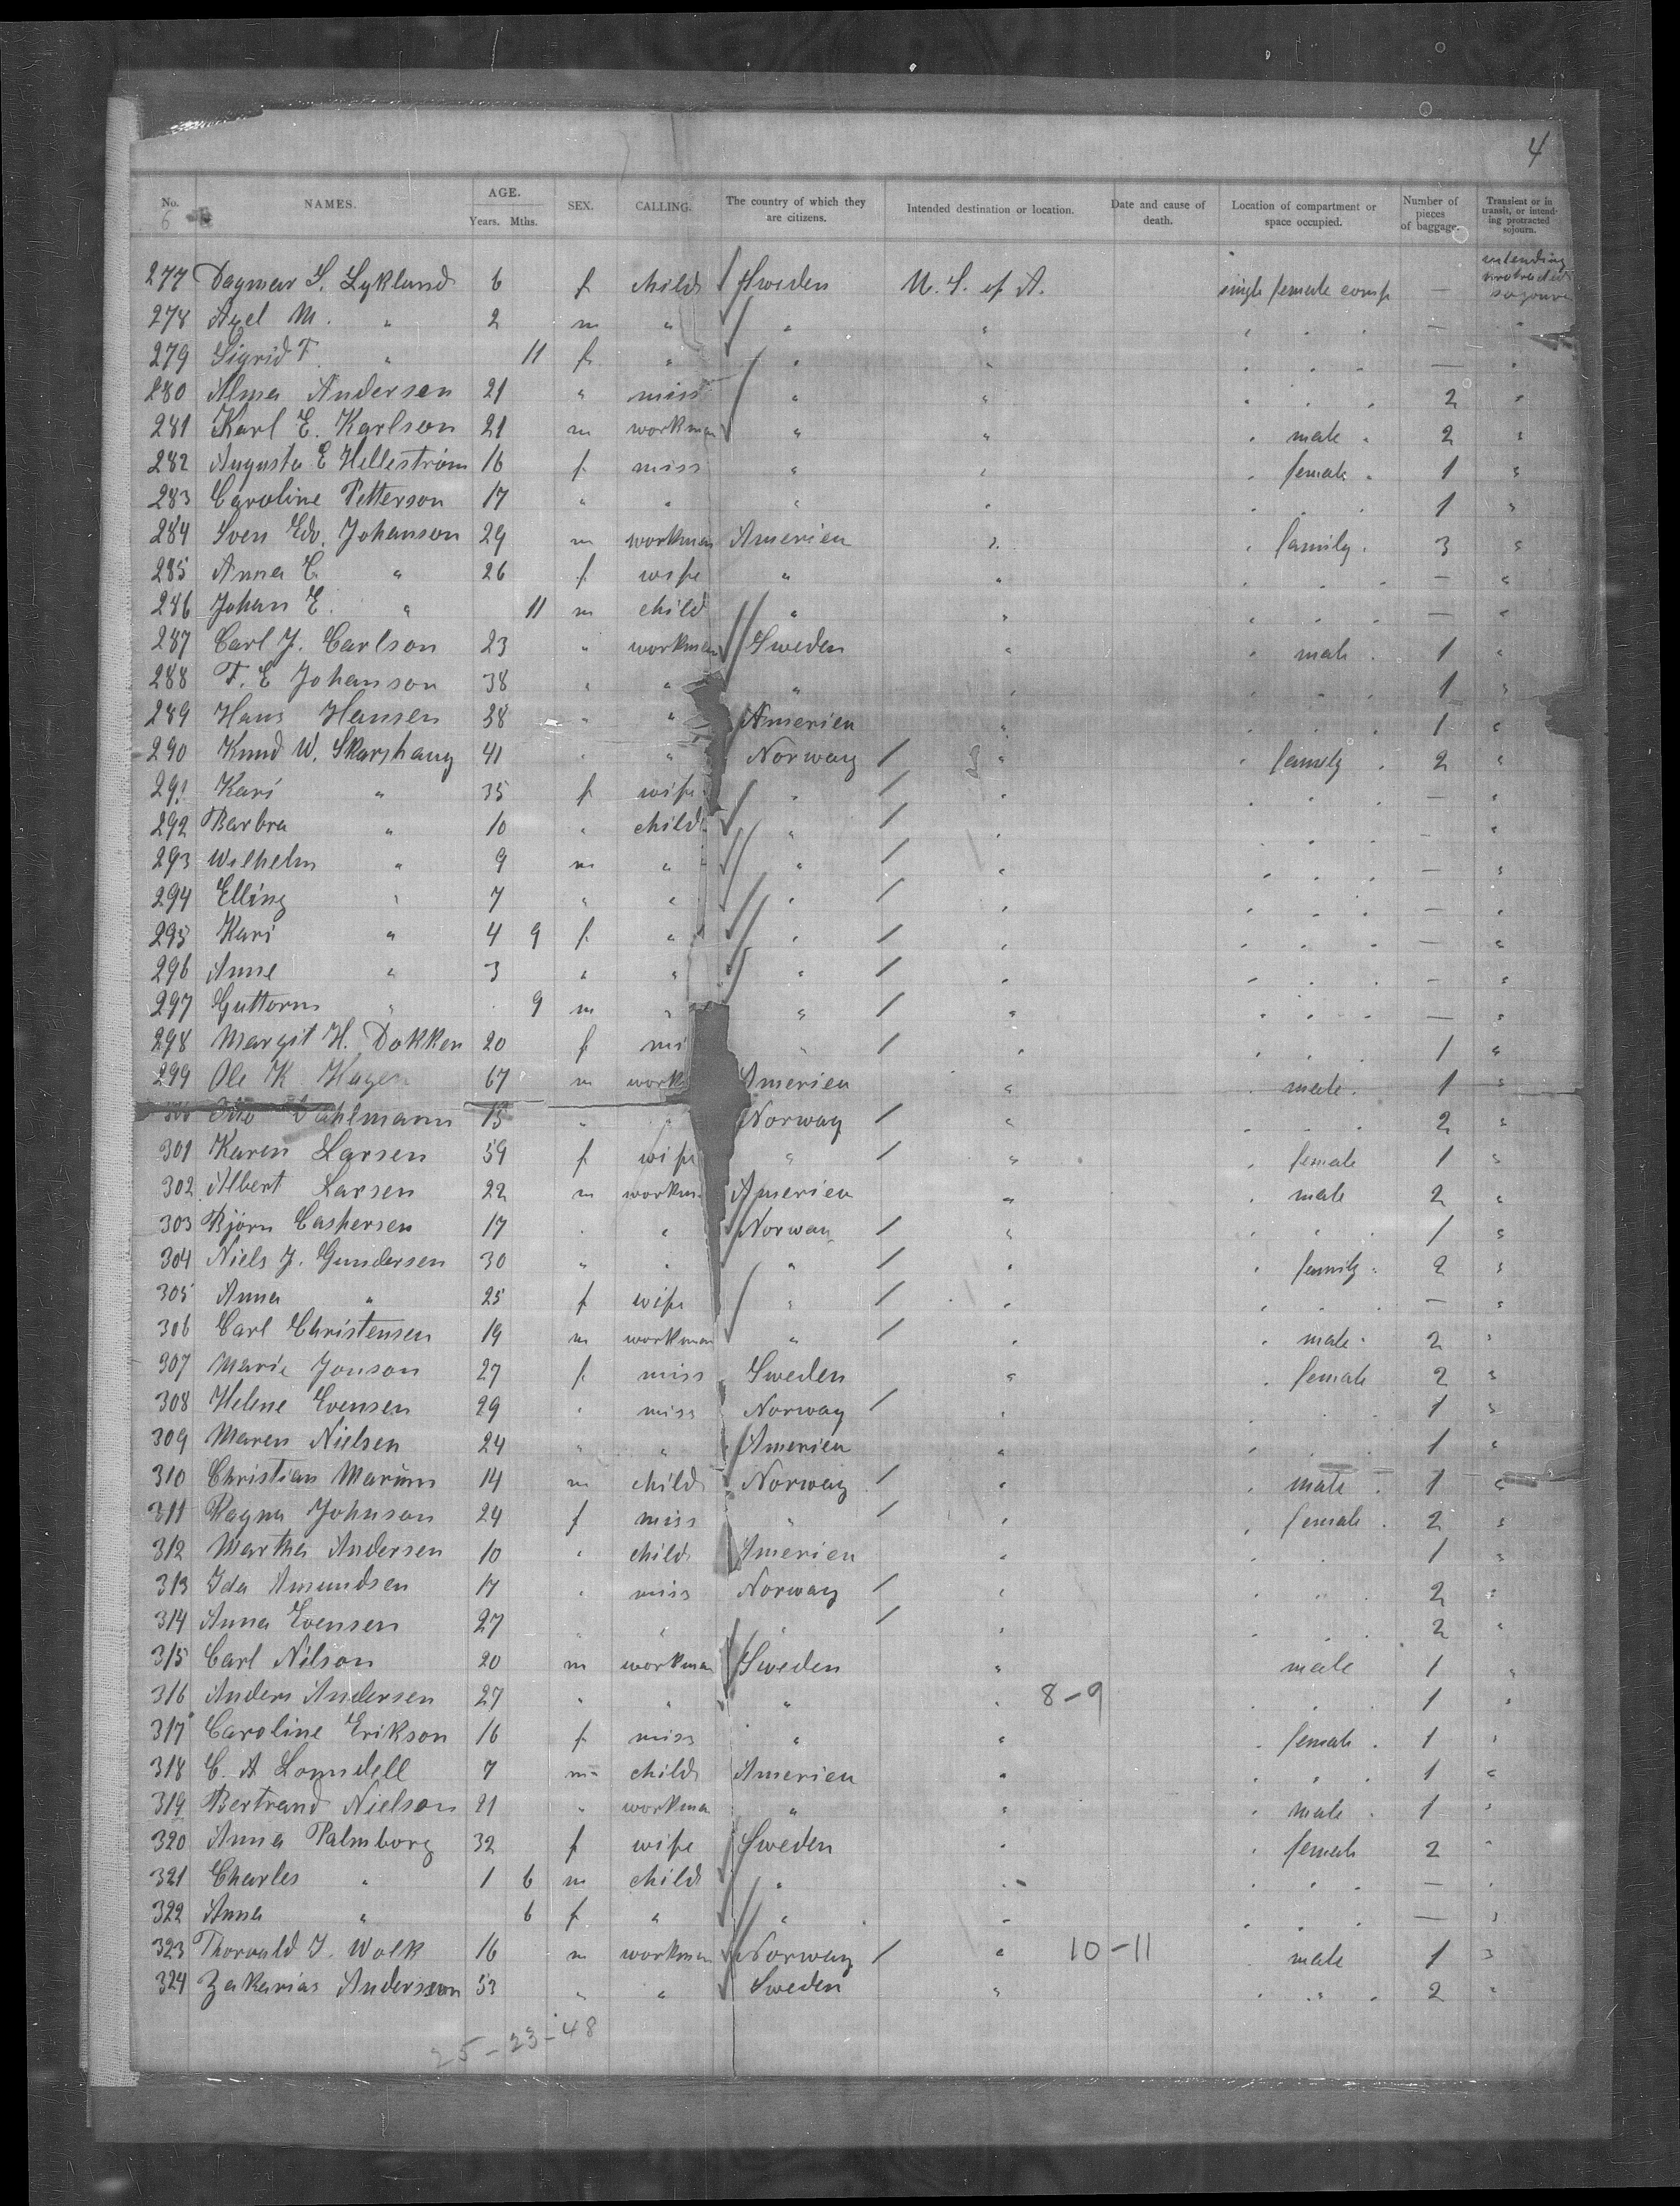 4
No. NAMES. AGE. Years. Mths. SEX. CALLING. The country of which they are citizens. Intended destination or location. Date and cause of death. Location of compartment or space occupied. Number of pieces of baggage. Transient or in transit, or intending protracted sojourn.
6
277 Dagmar S. Lykland 6 f child Sweden U. S. of A. single female comp — intending protracted sojourn
278 Axel M. " 2 m " " " " " " — "
279 Sigrid T. " 11 f " " " " " " — "
280 Alma Andersen 21 " miss " " " " " 2 "
281 Karl E. Karlson 21 m workman " " " male " 2 "
282 Augusta E Helleström 16 f miss " " " female " 1 "
283 Caroline Petterson 17 " " " " " " " 1 "
284 Sven Edv. Johanson 29 m workman America " " family " 3 "
285 Anna C " 26 f wife " " " " " — "
286 Johan E. " 11 m child " " " " " — "
287 Carl J. Carlson 23 " workman Sweden " " male " 1 "
288 F. E Johanson 38 " " " " " " " 1 "
289 Hans Hansen 38 " " America " " " " 1 "
290 Knud W. Skarshaug 41 " " Norway / " " family " 2 "
291 Kari " 35 f wife " / " " " " — "
292 Barbra " 10 " child " / " " " " — "
293 Wilhelm " 9 m " " / " " " " — "
294 Elling " 7 " " " / " " " " — "
295 Kari " 4 9 f " " / " " " " — "
296 Anne " 3 " " " / " " " " — "
297 Guttorm " 9 m " " / " " " " — "
298 Margit H. Dokken 20 f mi " / " " " " 1 "
299 Ole K. Hagen 67 m work America " " male " 1 "
Otto Dahlmann 15 " " Norway / " " " " 2 "
301 Karen Larsen 59 f wife " / " " female 1 "
302 Albert Larsen 22 m workm America " " male 2 "
303 Bjørn Caspersen 17 " " Norway / " " " " 1 "
304 Niels J. Gundersen 30 " " " / " " family " 2 "
305 Anna " 25 f wife " / " " " " — "
306 Carl Christensen 19 m workman " / " " male " 2 "
307 Marie Jonson 27 f miss Sweden " " female 2 "
308 Helene Evensen 29 " miss Norway / " " " " 1 "
309 Maren Nielsen 24 " " America " " " " 1 "
310 Christian Marum 14 m child Norway / " " male " 1 "
311 Ragna Johnson 24 f miss " / " " female " 2 "
312 Martha Andersen 10 " child America " " " 1 "
313 Ida Amundsen 17 " miss Norway / " " " " 2 "
314 Anna Evensen 27 " " " / " " " " 2 "
315 Carl Nilson 20 m workman Sweden " male 1 "
316 Anders Andersen 27 " " " " 8-9 " " " 1 "
317 Caroline Erikson 16 f miss " " " female " 1 "
318 C. A Lonsdell 7 m child America " " " " 1 "
319 Bertrand Nielson 21 " workman " " " male " 1 "
320 Anna Palmborg 32 f wife Sweden " " female 2 "
321 Charles " 1 6 m child " " " " " — "
322 Anna " 6 f " " " " " " — "
323 Thorvald J. Wolk 16 m workman Norway / " 10-11 " male 1 "
324 Zakarias Andersson 53 " " Sweden " " " " 2 "
25-23-48